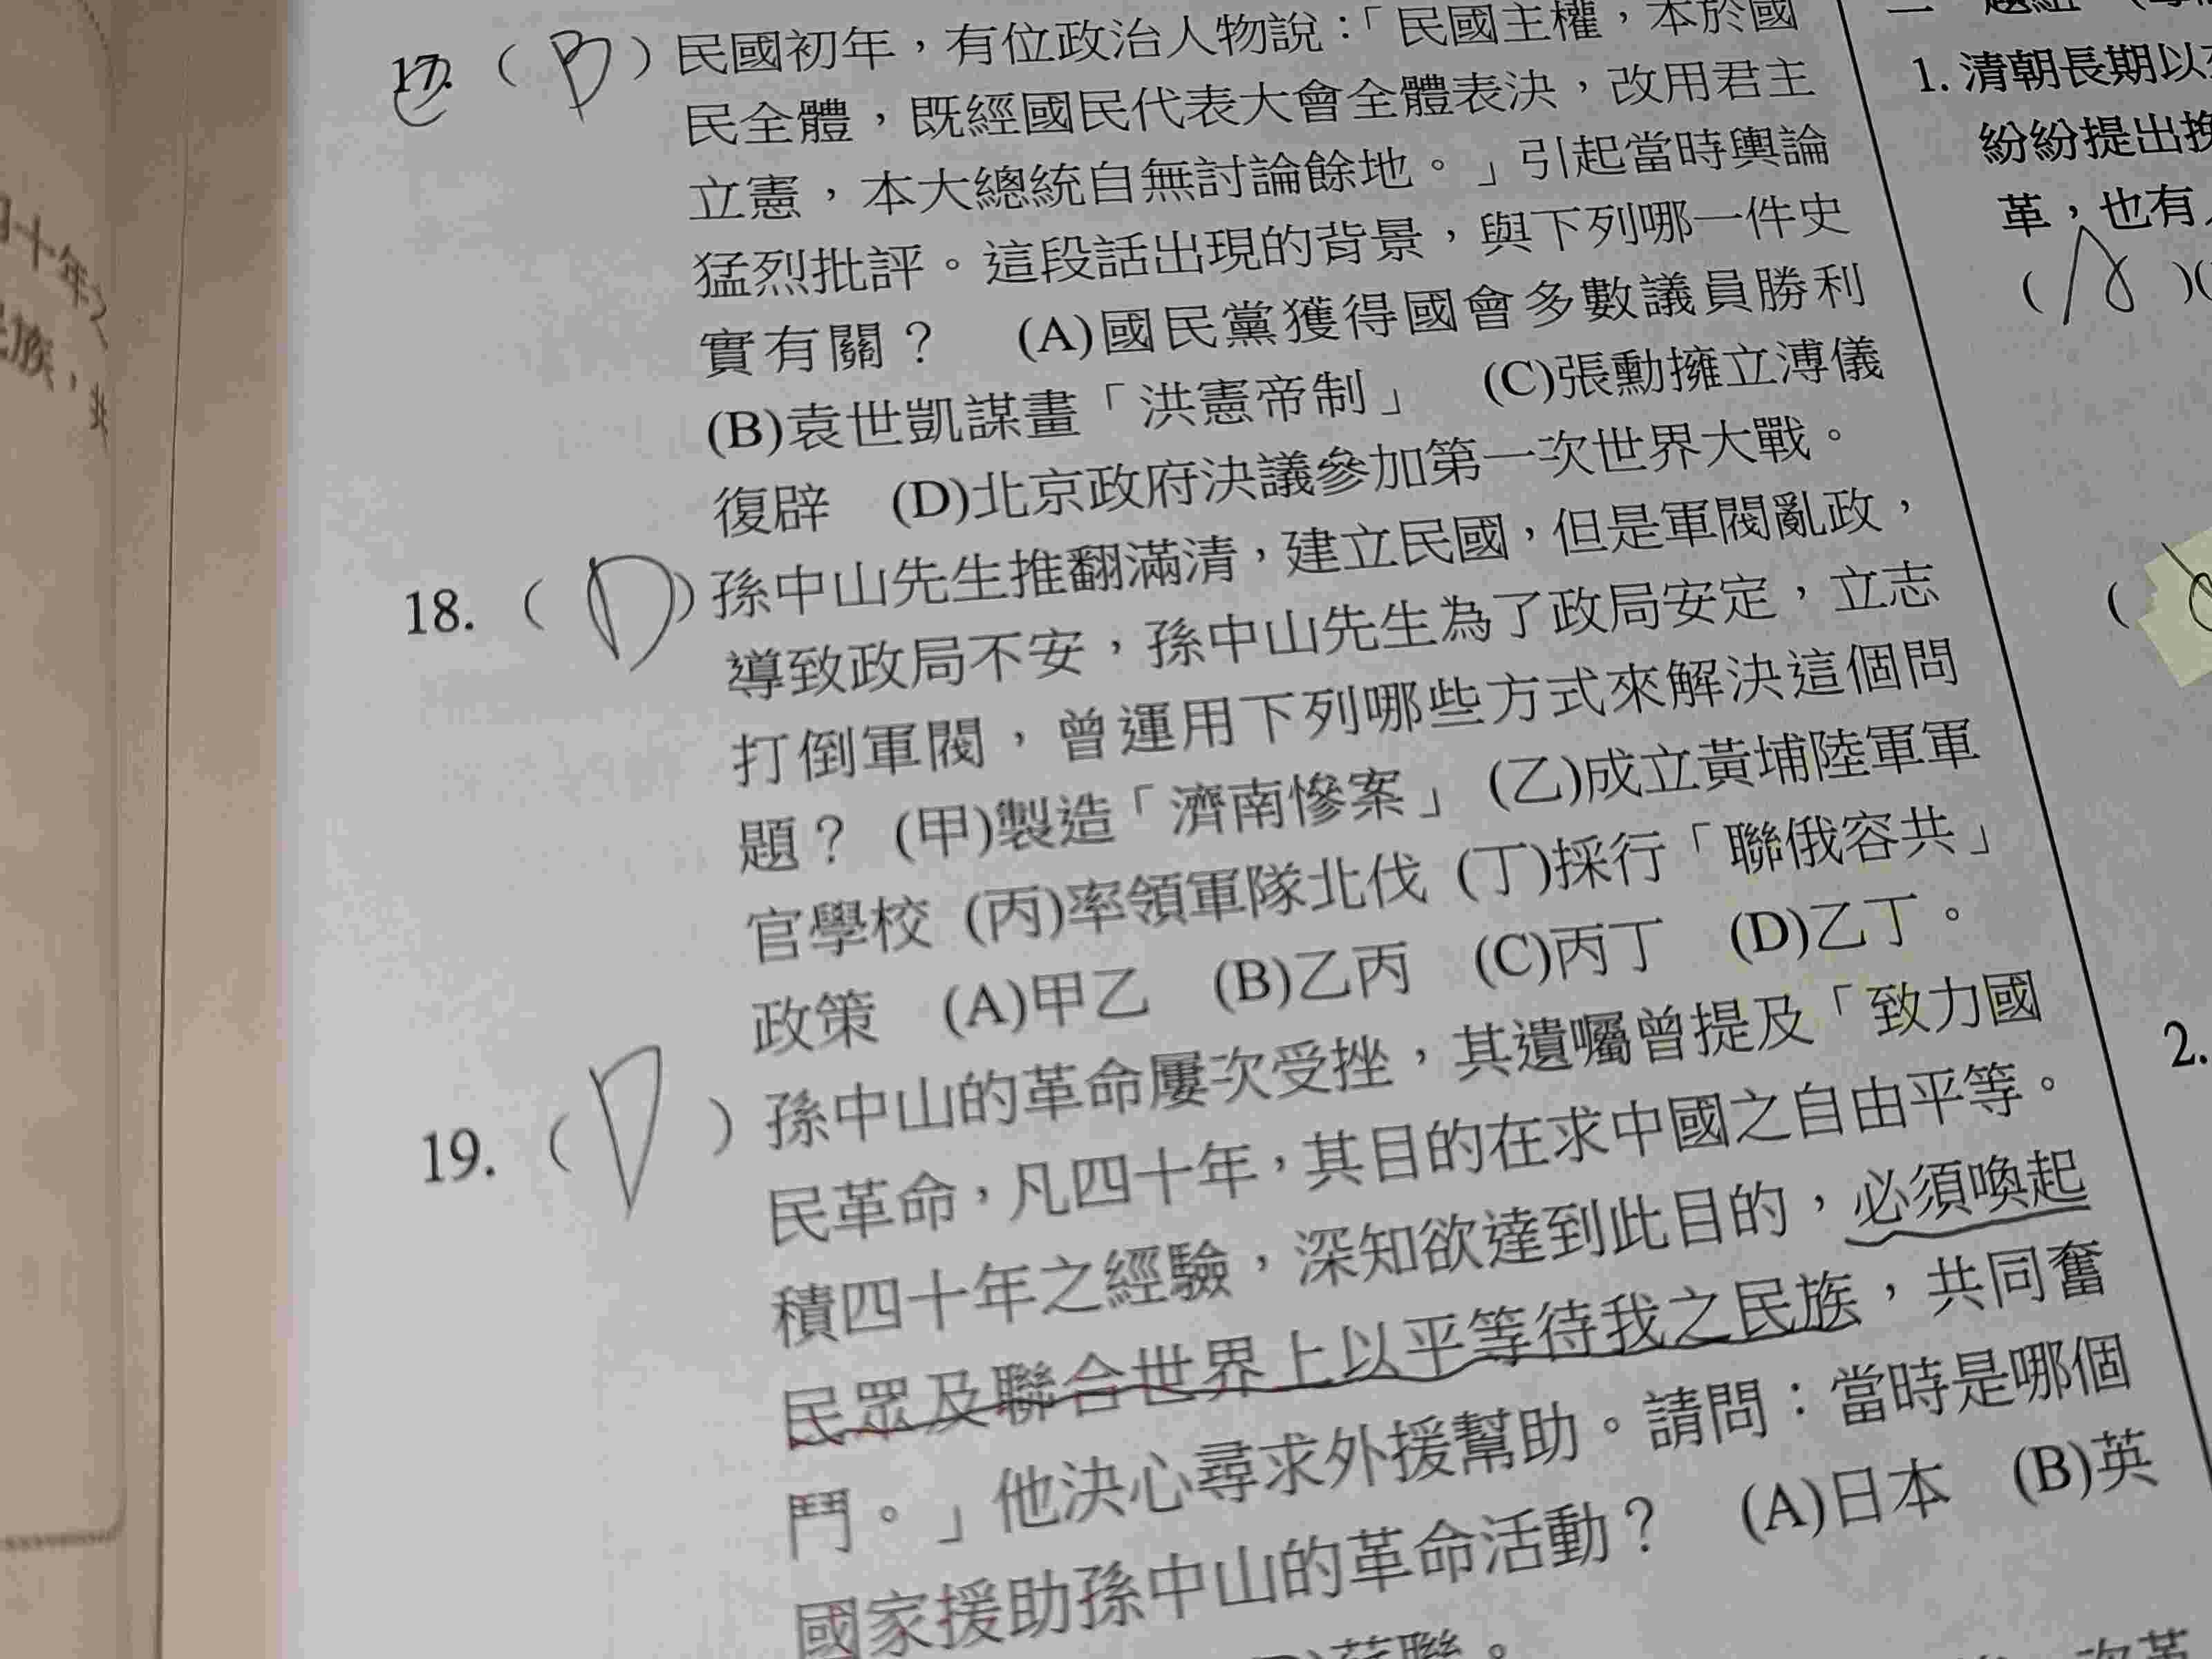 17.（B）民國初年，有位政治人物說：「民國主權，本於國
民全體，既經國民代表大會全體表決，改用君主
立憲，本大總統自無討論餘地。」引起當時輿論
猛烈批評。這段話出現的背景，與下列哪一件史
實有關？ (A)國民黨獲得國會多數議員勝利
(B)袁世凱謀畫「洪憲帝制」 (C)張勳擁立溥儀
復辟 (D)北京政府決議參加第一次世界大戰。
18.（D）孫中山先生推翻滿清，建立民國，但是軍閥亂政，
導致政局不安，孫中山先生為了政局安定，立志
打倒軍閥，曾運用下列哪些方式來解決這個問
題？ (甲)製造「濟南慘案」 (乙)成立黃埔陸軍軍
官學校 (丙)率領軍隊北伐 (丁)採行「聯俄容共」
政策 (A)甲乙 (B)乙丙 (C)丙丁 (D)乙丁。
19.（D）孫中山的革命屢次受挫，其遺囑曾提及「致力國
民革命，凡四十年，其目的在求中國之自由平等。
積四十年之經驗，深知欲達到此目的，必須喚起
民眾及聯合世界上以平等待我之民族，共同奮
鬥。」他決心尋求外援幫助。請問：當時是哪個
國家援助孫中山的革命活動？ (A)日本 (B)英
蘇聯。
1. 清朝長期以
紛紛提出
革，也有
2.
四十年
民族，